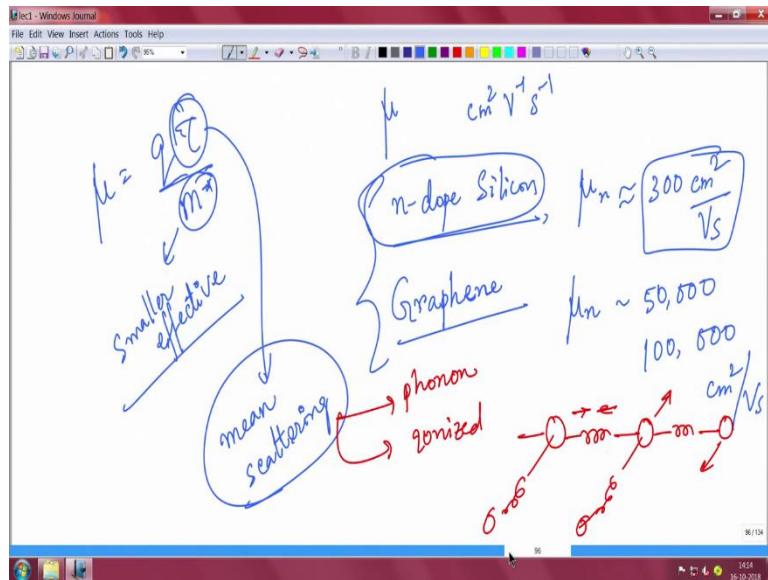 lec1 - Windows Journal
File Edit View Insert Actions Tools Help
95%
μ = q τ / m*
smaller
effective
mean
scattering
phonon
ionized
μ cm² V⁻¹ s⁻¹
n-dope Silicon
μn ≈ 300 cm² / Vs
Graphene
μn ~ 50,000
100,000
cm² / Vs
96 / 134
96
14:14
16-10-2018